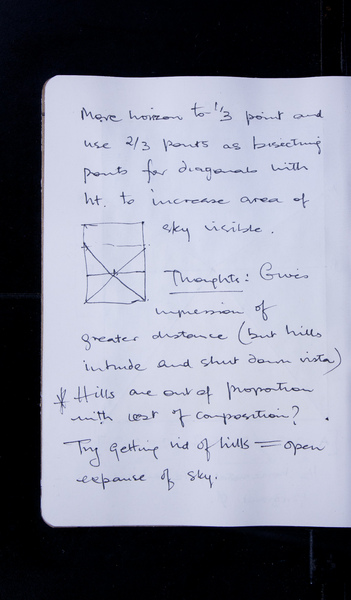 Move horizon to 1/3 point and
use 2/3 points as bisecting
points for diagonals with
ht. to increase area of
sky visible.
Thoughts: Gives
impression of
greater distance (but hills
intrude and shut down vista)
* Hills are out of proportion
with rest of composition?
Try getting rid of hills = open
expanse of sky.